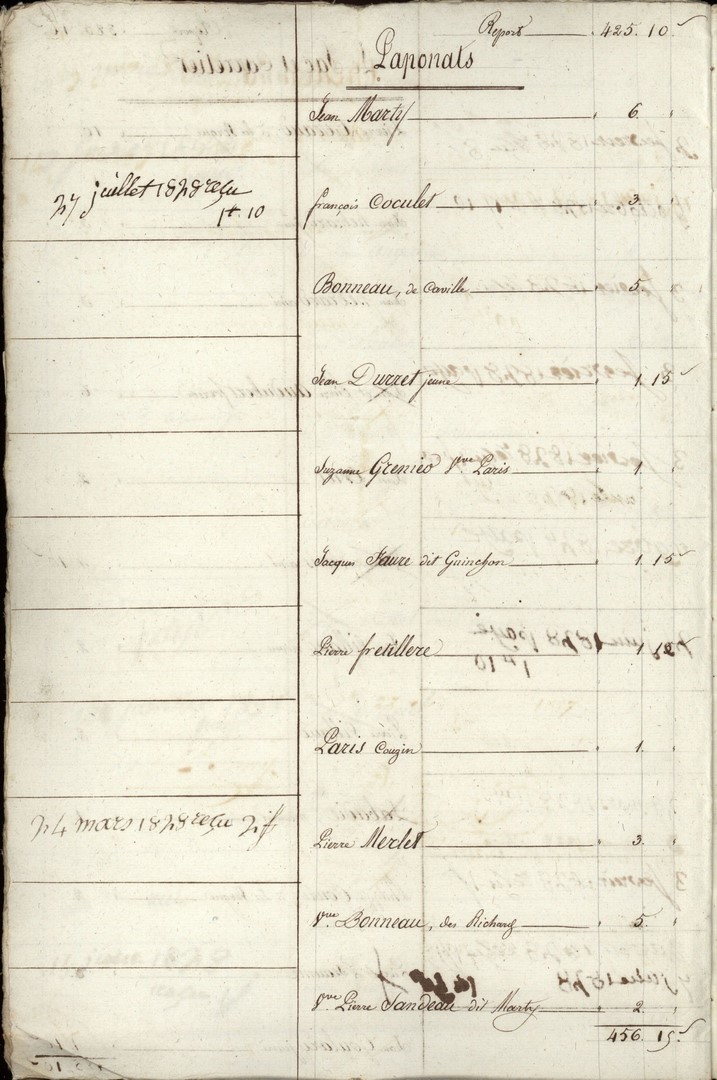 Report 425. 10.
Paponats
Jean Marty 6.
27 juillet 1828 reçu
1# 10
françois Coculet 3.
Bonneau, de Caville 5.
Jean Duzzet jeune 1. 15
Suzanne Grenico Vve Paris 1.
Jacques Faure dit Guinchon 1. 15
Pierre fretillere 1.
Paris Couzin 1.
24 mars 1828 reçu 2#
Pierre Merlet 3.
Vve Bonneau, des Richard 5.
Vve Pierre Jandeau dit Marty 2.
456. 15.